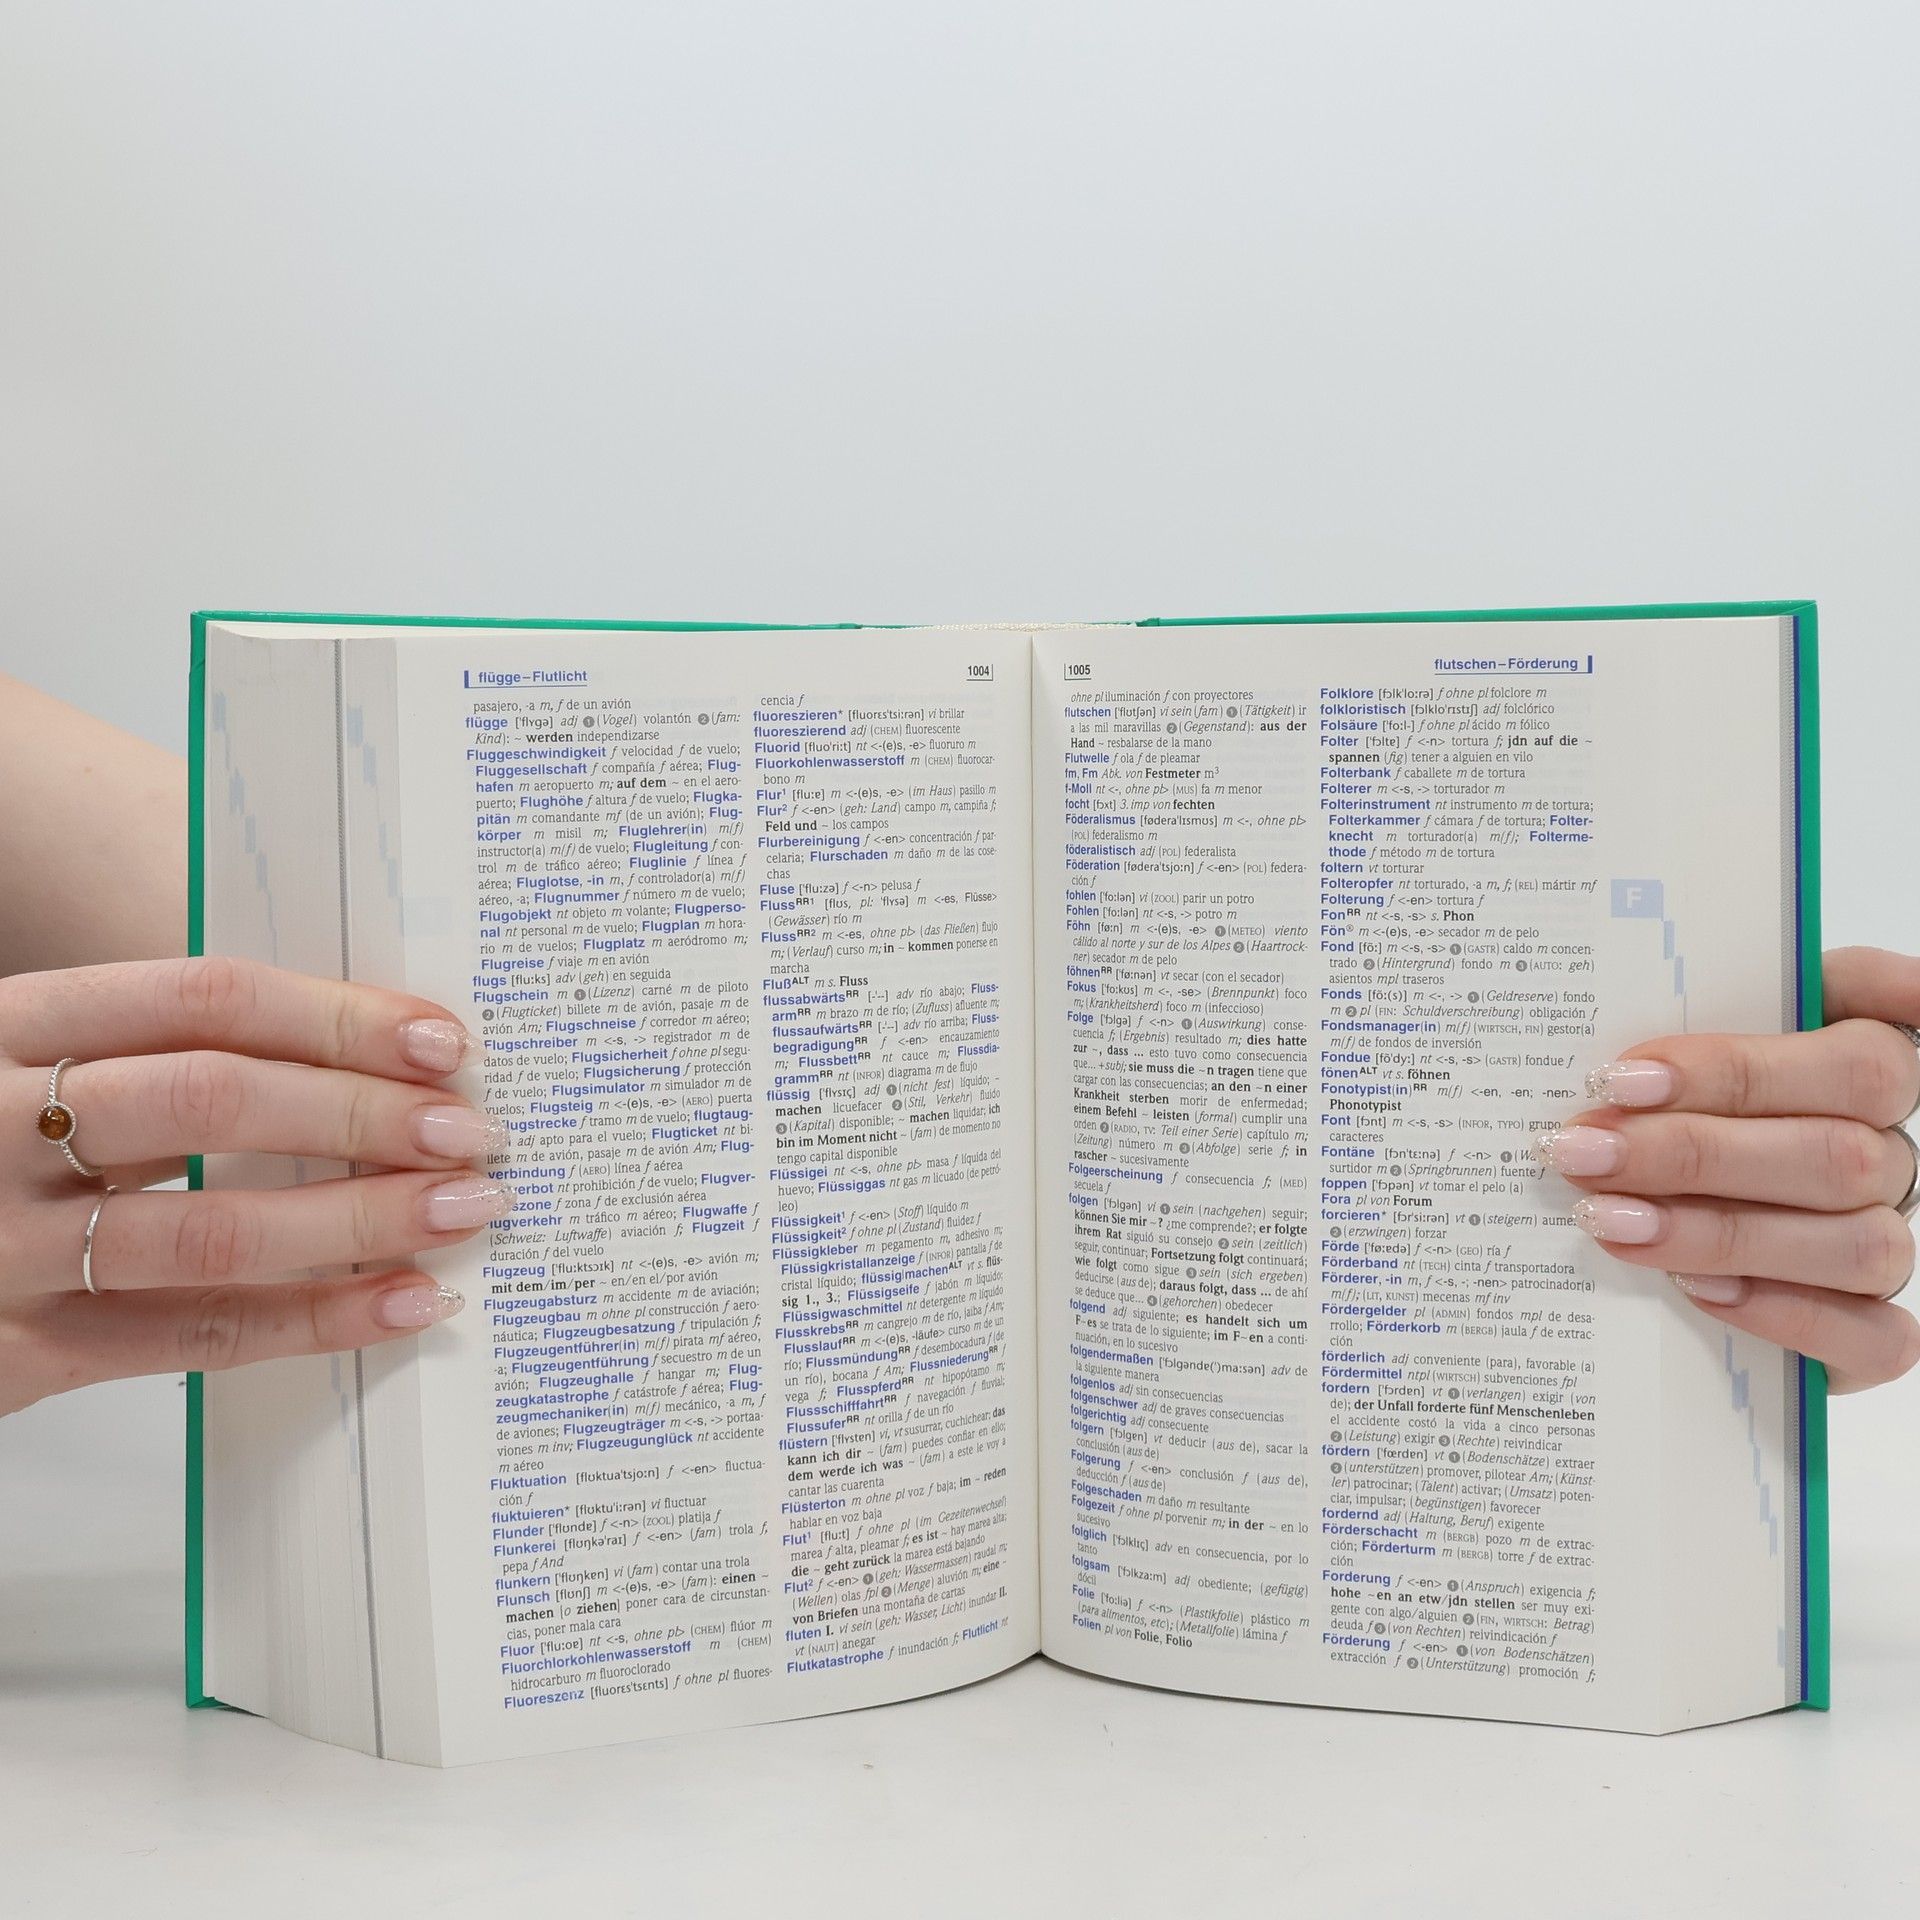 flügge–Flutlicht
1004
pasajero, -a m, f de un avión
flügge ['flʏgə] adj ❶ (Vogel) volantón ❷ (fam:
Kind): ~ werden independizarse
Fluggeschwindigkeit f velocidad f de vuelo;
Fluggesellschaft f compañía f aérea; Flug-
hafen m aeropuerto m; auf dem ~ en el aero-
puerto; Flughöhe f altura f de vuelo; Flugka-
pitän m comandante mf (de un avión); Flug-
körper m misil m; Fluglehrer(in) m(f)
instructor(a) m(f) de vuelo; Flugleitung f con-
trol m de tráfico aéreo; Fluglinie f línea f
aérea; Fluglotse, -in m, f controlador(a) m(f)
aéreo, -a; Flugnummer f número m de vuelo;
Flugobjekt nt objeto m volante; Flugperso-
nal nt personal m de vuelo; Flugplan m hora-
rio m de vuelos; Flugplatz m aeródromo m;
Flugreise f viaje m en avión
flugs [flu:ks] adv (geh) en seguida
Flugschein m ❶ (Lizenz) carné m de piloto
❷ (Flugticket) billete m de avión, pasaje m de
avión Am; Flugschneise f corredor m aéreo;
Flugschreiber m <-s, -> registrador m de
datos de vuelo; Flugsicherheit f ohne pl segu-
ridad f de vuelo; Flugsicherung f protección
f de vuelo; Flugsimulator m simulador m de
vuelos; Flugsteig m <-(e)s, -e> (AERO) puerta
f tramo m de vuelo; flugtaug-
adj apto para el vuelo; Flugticket nt bi-
llete m de avión, pasaje m de avión Am; Flug-
verbindung f (AERO) línea f aérea
nt prohibición f de vuelo; Flugver-
f zona f de exclusión aérea
m tráfico m aéreo; Flugwaffe f
(Schweiz: Luftwaffe) aviación f; Flugzeit f
duración f del vuelo
Flugzeug ['flu:ktsɔɪk] nt <-(e)s, -e> avión m;
mit dem/im/per ~ en/en el/por avión
Flugzeugabsturz m accidente m de aviación;
Flugzeugbau m ohne pl construcción f aero-
náutica; Flugzeugbesatzung f tripulación f;
Flugzeugentführer(in) m(f) pirata mf aéreo,
-a; Flugzeugentführung f secuestro m de un
avión; Flugzeughalle f hangar m; Flug-
zeugkatastrophe f catástrofe f aérea; Flug-
zeugmechaniker(in) m(f) mecánico, -a m, f
de aviones; Flugzeugträger m <-s, -> portaa-
viones m inv; Flugzeugunglück nt accidente
m aéreo
Fluktuation [flʊktua'tsjo:n] f <-en> fluctua-
ción f
fluktuieren* [flʊktu'i:rən] vi fluctuar
Flunder ['flʊndɐ] f <-n> (ZOOL) platija f
Flunkerei [flʊŋkə'raɪ] f <-en> (fam) trola f,
pepa f And
flunkern ['flʊŋkɐn] vi (fam) contar una trola
Flunsch [flʊnʃ] m <-(e)s, -e> (fam): einen ~
machen [o ziehen] poner cara de circunstan-
cias, poner mala cara
Fluor ['flu:oɐ] nt <-s, ohne pl> (CHEM) flúor m
Fluorchlorkohlenwasserstoff m (CHEM)
hidrocarburo m fluoroclorado
Fluoreszenz [fluorɛs'tsɛnts] f ohne pl fluores-
cencia f
fluoreszieren* [fluorɛs'tsi:rən] vi brillar
fluoreszierend adj (CHEM) fluorescente
Fluorid [fluo'ri:t] nt <-(e)s, -e> fluoruro m
Fluorkohlenwasserstoff m (CHEM) fluorocar-
bono m
Flur¹ [flu:ɐ] m <-(e)s, -e> (im Haus) pasillo m
Flur² f <-en> (geh: Land) campo m, campiña f;
Feld und ~ los campos
Flurbereinigung f <-en> concentración f par-
celaria; Flurschaden m daño m de las cose-
chas
Fluse ['flu:zə] f <-n> pelusa f
Flussᴿᴿ¹ [flʊs, pl: 'flʏsə] m <-es, Flüsse>
(Gewässer) río m
Flussᴿᴿ² m <-es, ohne pl> (das Fließen) flujo
m; (Verlauf) curso m; in ~ kommen ponerse en
marcha
Flußᴬᴸᵀ m s. Fluss
flussabwärtsᴿᴿ [-'--] adv río abajo; Fluss-
armᴿᴿ m brazo m de río; (Zufluss) afluente m;
flussaufwärtsᴿᴿ [-'--] adv río arriba; Fluss-
begradigungᴿᴿ f <-en> encauzamiento
m; Flussbettᴿᴿ nt cauce m; Flussdia-
grammᴿᴿ nt (INFOR) diagrama m de flujo
flüssig ['flʏsɪç] adj ❶ (nicht fest) líquido; ~
machen licuefacer ❷ (Stil, Verkehr) fluido
❸ (Kapital) disponible; ~ machen liquidar; ich
bin im Moment nicht ~ (fam) de momento no
tengo capital disponible
Flüssigei nt <-s, ohne pl> masa f líquida del
huevo; Flüssiggas nt gas m licuado (de petró-
leo)
Flüssigkeit¹ f <-en> (Stoff) líquido m
Flüssigkeit² f ohne pl (Zustand) fluidez f
Flüssigkleber m pegamento m, adhesivo m;
Flüssigkristallanzeige f (INFOR) pantalla f de
cristal líquido; flüssig|machenᴬᴸᵀ vt s. flüs-
sig 1., 3.; Flüssigseife f jabón m líquido;
Flüssigwaschmittel nt detergente m líquido
Flusskrebsᴿᴿ m cangrejo m de río, jaiba f Am;
Flusslaufᴿᴿ m <-(e)s, -läufe> curso m de un
río; Flussmündungᴿᴿ f desembocadura f (de
un río), bocana f Am; Flussniederungᴿᴿ f
vega f; Flusspferdᴿᴿ nt hipopótamo m;
Flussschifffahrtᴿᴿ f navegación f fluvial;
Flussuferᴿᴿ nt orilla f de un río
flüstern ['flʏstɐn] vi, vt susurrar, cuchichear; das
kann ich dir ~ (fam) puedes confiar en ello;
dem werde ich was ~ (fam) a este le voy a
cantar las cuarenta
Flüsterton m ohne pl voz f baja; im ~ reden
hablar en voz baja
Flut¹ [flu:t] f ohne pl (im Gezeitenwechsel)
marea f alta, pleamar f; es ist ~ hay marea alta;
die ~ geht zurück la marea está bajando
Flut² f <-en> ❶ (geh: Wassermassen) raudal m;
(Wellen) olas fpl ❷ (Menge) aluvión m; eine ~
von Briefen una montaña de cartas
fluten I. vi sein (geh: Wasser, Licht) inundar II.
vt (NAUT) anegar
Flutkatastrophe f inundación f; Flutlicht nt
1005
flutschen–Förderung
ohne pl iluminación f con proyectores
flutschen ['flʊtʃən] vi sein (fam) ❶ (Tätigkeit) ir
a las mil maravillas ❷ (Gegenstand): aus der
Hand ~ resbalarse de la mano
Flutwelle f ola f de pleamar
fm, Fm Abk. von Festmeter m³
f-Moll nt <-, ohne pl> (MUS) fa m menor
focht [fɔxt] 3. imp von fechten
Föderalismus [fødera'lɪsmʊs] m <-, ohne pl>
(POL) federalismo m
föderalistisch adj (POL) federalista
Föderation [fødera'tsjo:n] f <-en> (POL) federa-
ción f
fohlen ['fo:lən] vi (ZOOL) parir un potro
Fohlen ['fo:lən] nt <-s, -> potro m
Föhn [fø:n] m <-(e)s, -e> ❶ (METEO) viento
cálido al norte y sur de los Alpes ❷ (Haartrock-
ner) secador m de pelo
föhnenᴿᴿ ['fø:nən] vt secar (con el secador)
Fokus ['fo:kʊs] m <-, -se> (Brennpunkt) foco
m; (Krankheitsherd) foco m (infeccioso)
Folge ['fɔlgə] f <-n> ❶ (Auswirkung) conse-
cuencia f, (Ergebnis) resultado m; dies hatte
zur ~, dass ... esto tuvo como consecuencia
que... +subj; sie muss die ~n tragen tiene que
cargar con las consecuencias; an den ~n einer
Krankheit sterben morir de enfermedad;
einem Befehl ~ leisten (formal) cumplir una
orden ❷ (RADIO, TV: Teil einer Serie) capítulo m;
(Zeitung) número m ❸ (Abfolge) serie f; in
rascher ~ sucesivamente
Folgeerscheinung f consecuencia f; (MED)
secuela f
folgen ['fɔlgən] vi ❶ sein (nachgehen) seguir;
können Sie mir ~? ¿me comprende?; er folgte
ihrem Rat siguió su consejo ❷ sein (zeitlich)
seguir, continuar; Fortsetzung folgt continuará;
wie folgt como sigue ❸ sein (sich ergeben)
deducirse (aus de); daraus folgt, dass ... de ahí
se deduce que... ❹ (gehorchen) obedecer
folgend adj siguiente; es handelt sich um
F~es se trata de lo siguiente; im F~en a conti-
nuación, en lo sucesivo
folgendermaßen ['fɔlgəndɐ(')ma:sən] adv de
la siguiente manera
folgenlos adj sin consecuencias
folgenschwer adj de graves consecuencias
folgerichtig adj consecuente
folgern ['fɔlgɐn] vt deducir (aus de), sacar la
conclusión (aus de)
Folgerung f <-en> conclusión f (aus de),
deducción f (aus de)
Folgeschaden m daño m resultante
Folgezeit f ohne pl porvenir m; in der ~ en lo
sucesivo
folglich ['fɔlklɪç] adv en consecuencia, por lo
tanto
folgsam ['fɔlkza:m] adj obediente; (gefügig)
dócil
Folie ['fo:liə] f <-n> (Plastikfolie) plástico m
(para alimentos, etc); (Metallfolie) lámina f
Folien pl von Folie, Folio
Folklore [fɔlk'lo:rə] f ohne pl folclore m
folkloristisch [fɔlklo'rɪstɪʃ] adj folclórico
Folsäure ['fo:l-] f ohne pl ácido m fólico
Folter ['fɔltɐ] f <-n> tortura f; jdn auf die ~
spannen (fig) tener a alguien en vilo
Folterbank f caballete m de tortura
Folterer m <-s, -> torturador m
Folterinstrument nt instrumento m de tortura;
Folterkammer f cámara f de tortura; Folter-
knecht m torturador(a) m(f); Folterme-
thode f método m de tortura
foltern vt torturar
Folteropfer nt torturado, -a m, f; (REL) mártir mf
Folterung f <-en> tortura f
Fonᴿᴿ nt <-s, -s> s. Phon
Fön® m <-(e)s, -e> secador m de pelo
Fond [fõ:] m <-s, -s> ❶ (GASTR) caldo m concen-
trado ❷ (Hintergrund) fondo m ❸ (AUTO: geh)
asientos mpl traseros
Fonds [fõ:(s)] m <-, -> ❶ (Geldreserve) fondo
m ❷ pl (FIN: Schuldverschreibung) obligación f
Fondsmanager(in) m(f) (WIRTSCH, FIN) gestor(a)
m(f) de fondos de inversión
Fondue [fõ'dy:] nt <-s, -s> (GASTR) fondue f
fönenᴬᴸᵀ vt s. föhnen
Fonotypist(in)ᴿᴿ m(f) <-en, -en; -nen> s.
Phonotypist
Font [fɔnt] m <-s, -s> (INFOR, TYPO) grupo
caracteres
Fontäne [fɔn'tɛ:nə] f <-n> ❶
surtidor m ❷ (Springbrunnen) fuente f
foppen ['fɔpən] vt tomar el pelo (a)
Fora pl von Forum
forcieren* [fɔr'si:rən] vt ❶ (steigern)
❷ (erzwingen) forzar
Förde ['fø:ɐdə] f <-n> (GEO) ría f
Förderband nt (TECH) cinta f transportadora
Förderer, -in m, f <-s, -; -nen> patrocinador(a)
m(f); (LIT, KUNST) mecenas mf inv
Fördergelder pl (ADMIN) fondos mpl de desa-
rrollo; Förderkorb m (BERGB) jaula f de extrac-
ción
förderlich adj conveniente (para), favorable (a)
Fördermittel ntpl (WIRTSCH) subvenciones fpl
fordern ['fɔrdɐn] vt ❶ (verlangen) exigir (von
de); der Unfall forderte fünf Menschenleben
el accidente costó la vida a cinco personas
❷ (Leistung) exigir ❸ (Rechte) reivindicar
fördern ['fœrdɐn] vt ❶ (Bodenschätze) extraer
❷ (unterstützen) promover, pilotear Am; (Künst-
ler) patrocinar; (Talent) activar; (Umsatz) poten-
ciar, impulsar; (begünstigen) favorecer
fordernd adj (Haltung, Beruf) exigente
Förderschacht m (BERGB) pozo m de extrac-
ción; Förderturm m (BERGB) torre f de extrac-
ción
Forderung f <-en> ❶ (Anspruch) exigencia f;
hohe ~en an etw/jdn stellen ser muy exi-
gente con algo/alguien ❷ (FIN, WIRTSCH: Betrag)
deuda f ❸ (von Rechten) reivindicación f
Förderung f <-en> ❶ (von Bodenschätzen)
extracción f ❷ (Unterstützung) promoción f;
F